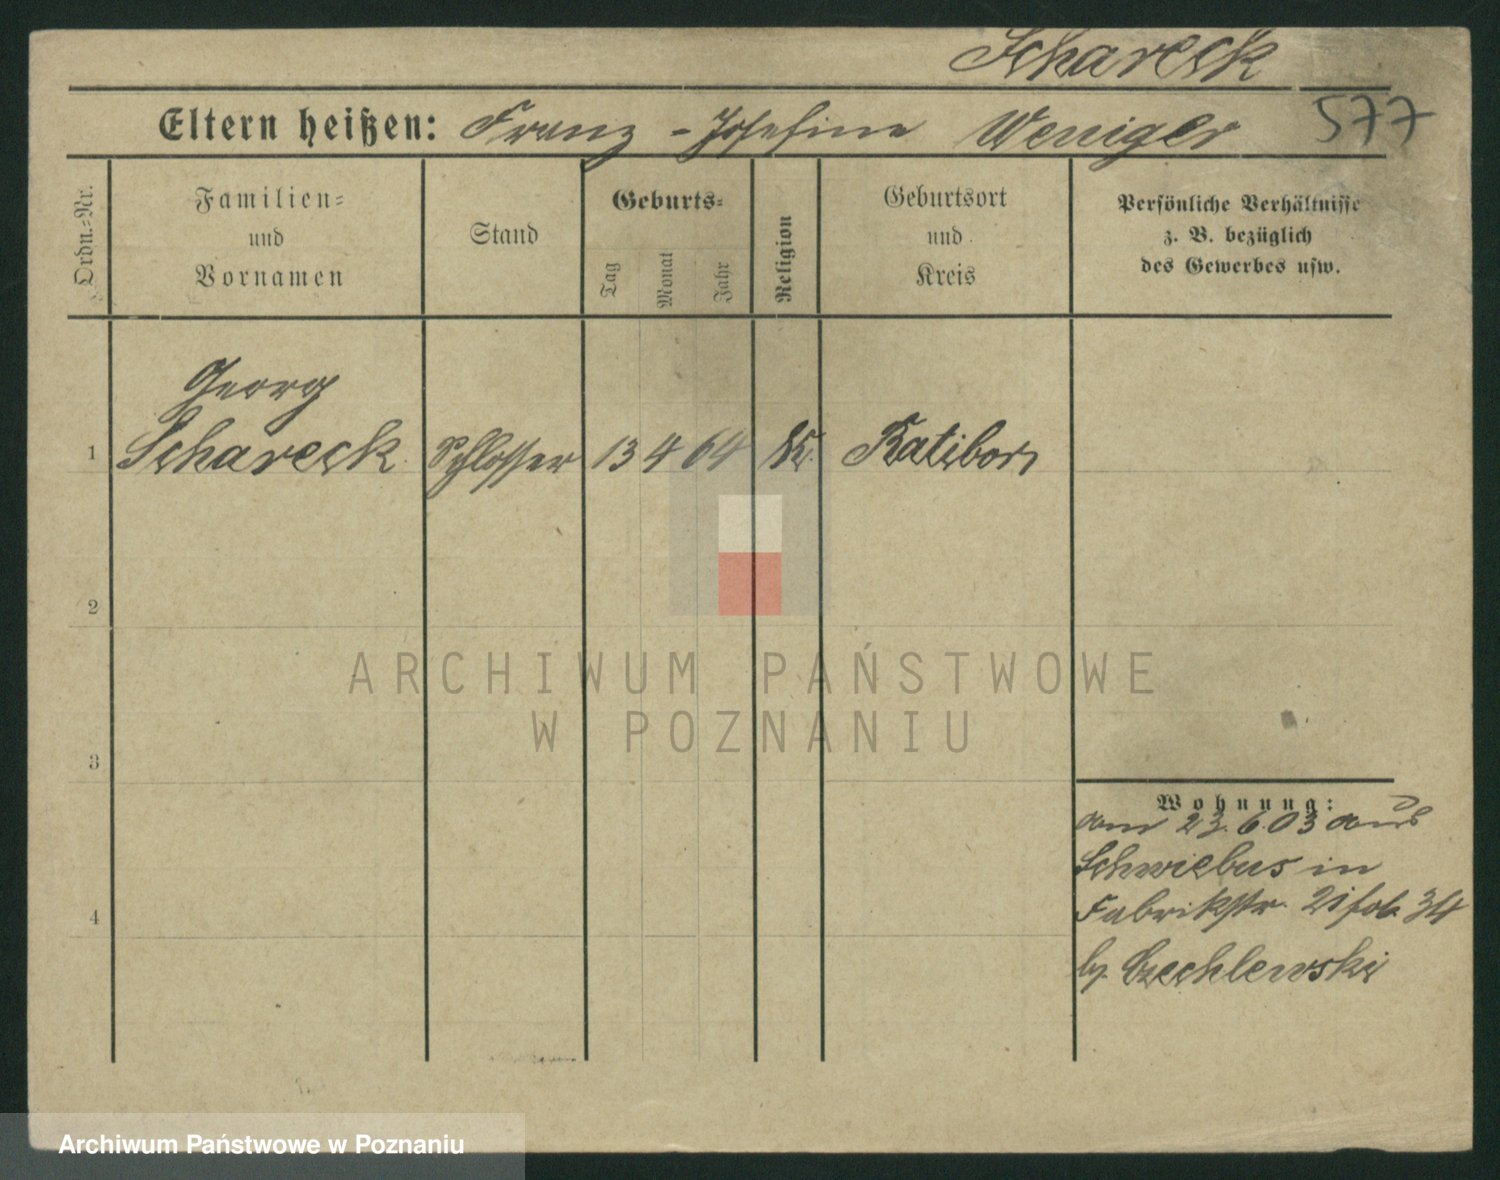 Schareck
Eltern heißen: Franz - Josefine Weniger
577
Ordn.-Nr.
Familien-
und
Vornamen
Stand
Geburts-
Tag
Monat
Jahr
Religion
Geburtsort
und
Kreis
Persönliche Verhältnisse
z. B. bezüglich
des Gewerbes usw.
Georg
1 Schareck Schlosser 13 4 64 K. Ratibor
2
3
4
Wohnung:
am 23.6.03 aus
Schwiebus in
Fabrikstr. 34
by. Czechlewski
ARCHIWUM PAŃSTWOWE
W POZNANIU
Archiwum Państwowe w Poznaniu